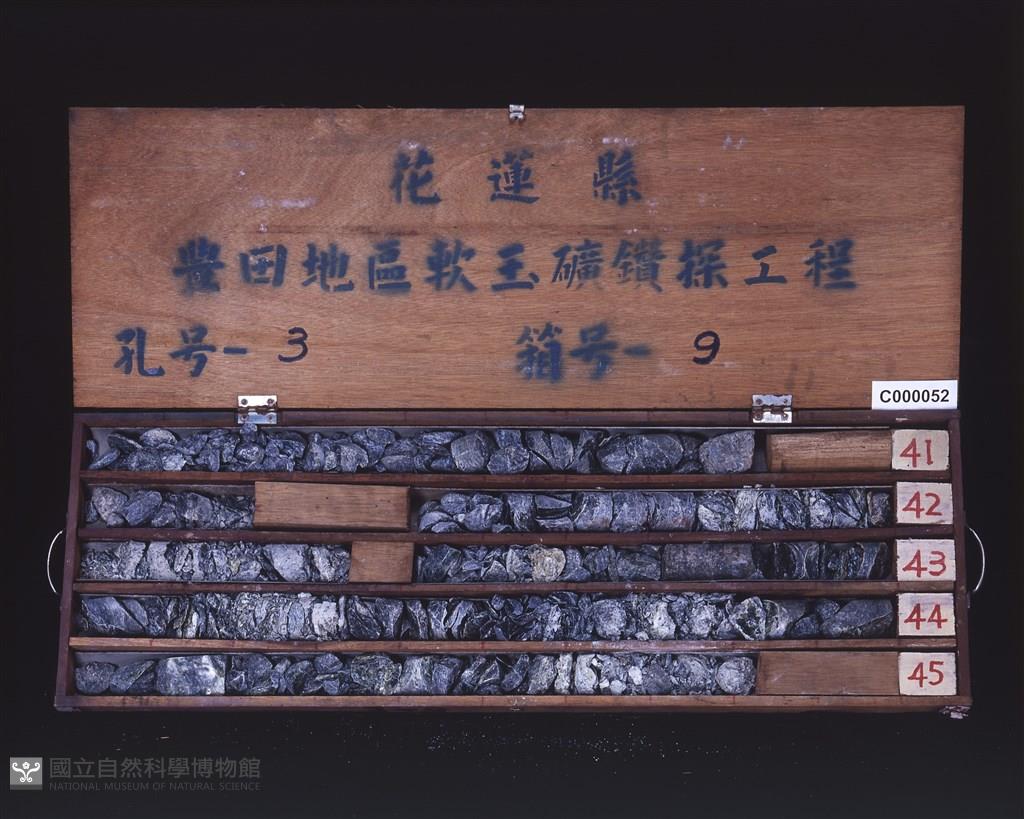 花蓮縣
豐田地區軟玉礦鑽探工程
孔号-3 箱号-9
C000052
41
42
43
44
45
國立自然科學博物館
NATIONAL MUSEUM OF NATURAL SCIENCE